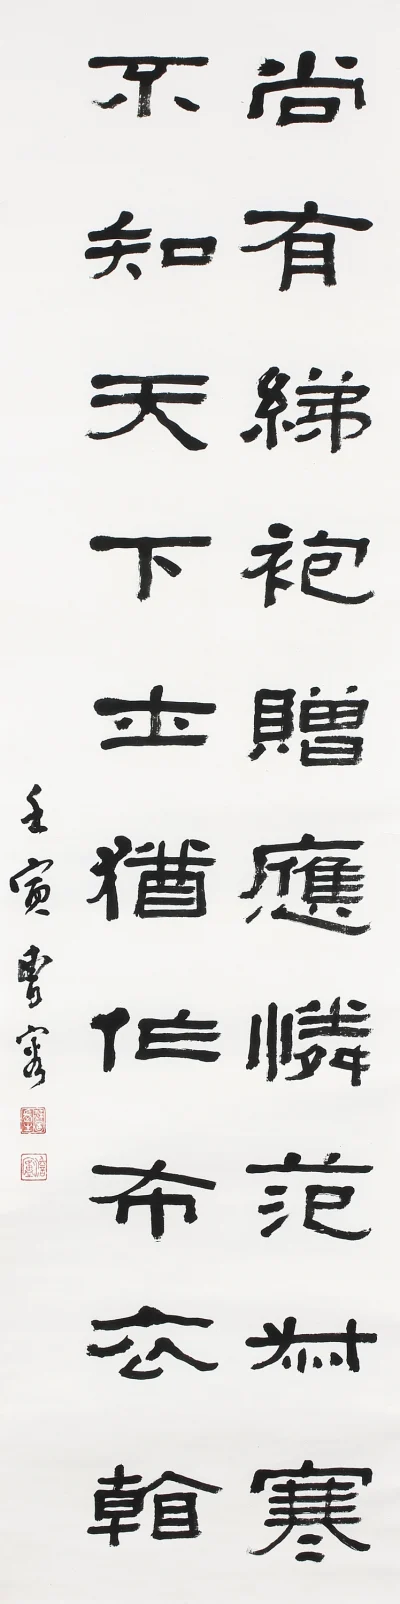 尚有綈袍贈應憐范叔寒
不知天下士猶作布衣看
壬寅曹